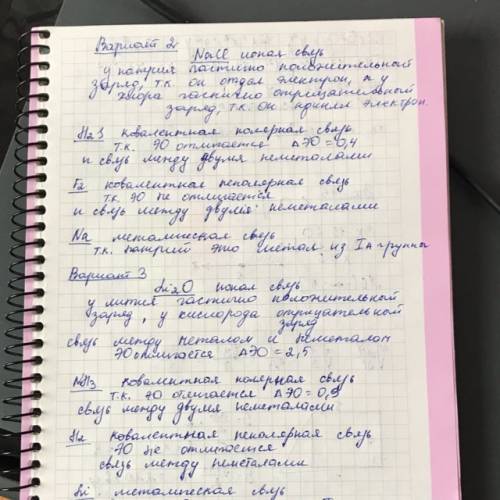 Вариант 2
NaCl ионая связь
у натрия частично положительный
заряд, т.к. он отдал электрон, а у
хлора частично отрицательный
заряд, т.к. он принял электрон
H2S ковалентная полярная связь
т.к. ЭО отличается ΔЭО = 0,4
и связь между двумя неметалами
F2 ковалентная неполярная связь
т.к. ЭО не отличается
и связь между двумя неметалами
Na металическая связь
т.к. натрий это метал из IА группы
Вариант 3
Li2O ионая связь
у лития частично положительный
заряд, у кислорода отрицательный
заряд
связь между металом и неметалом
ЭО отличается ΔЭО = 2,5
NH3 ковалентная полярная связь
т.к. ЭО отличается ΔЭО = 0,9
связь между двумя неметалами
H2 ковалентная неполярная связь
ЭО не отличается
связь между неметалами
Li металическая связь